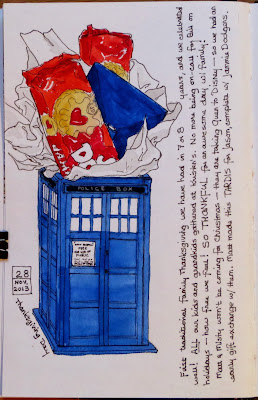 JAMM
DO
POLICE BOX
28
NOV.
2013
Thanksgiving Day
First traditional Family Thanksgiving we have had in 7 or 8 years, and we celebrated
well! All our kids and grandkids gathered at Kristin's. No more being on-call for Bill on
holidays — how free we feel! SO THANKFUL for an awesome day w/ family!
Matt & Misty won't be coming for Christmas — they are taking Quin to Disney — so we had an
early gift exchange w/ them. Matt made this TARDIS for Jason, complete w/ Jammie Dodgers.